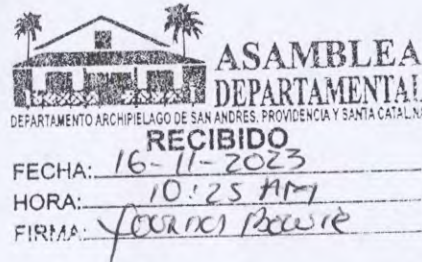 ASAMBLEA
DEPARTAMENTAL
DEPARTAMENTO ARCHIPIELAGO DE SAN ANDRES, PROVIDENCIA Y SANTA CATALINA
RECIBIDO
FECHA: 16-11-2023
HORA: 10:25 AM
FIRMA: Bowie